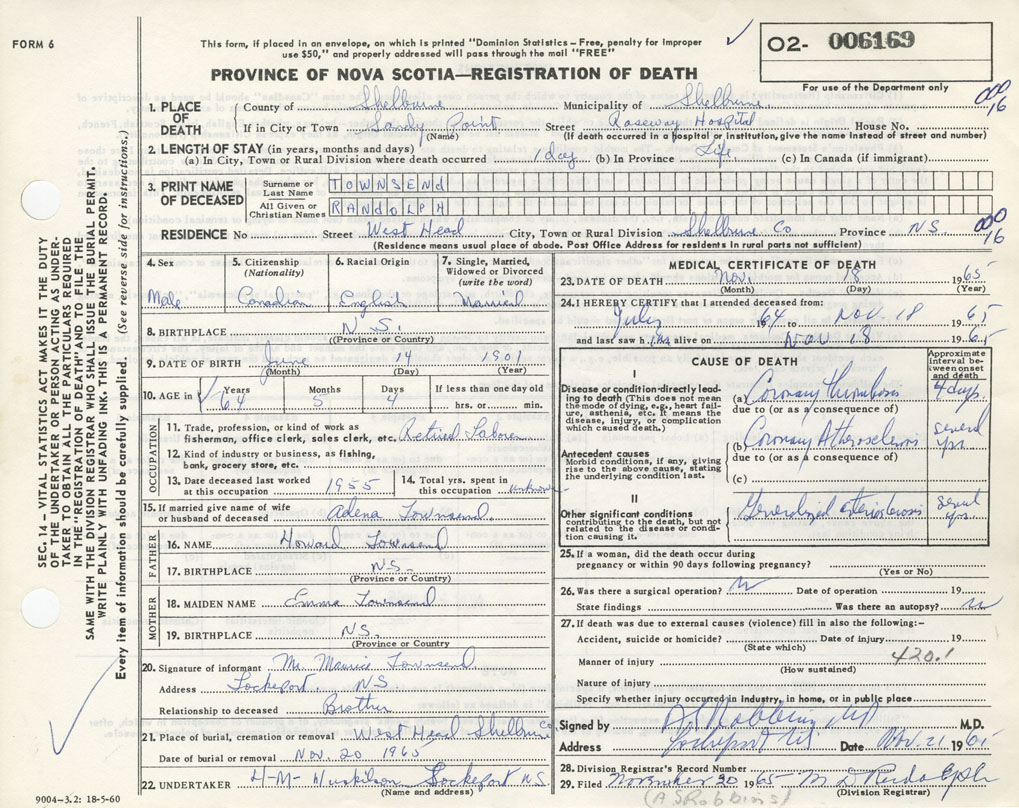 FORM 6
This form, if placed in an envelope, on which is printed "Dominion Statistics – Free, penalty for improper
use $50," and properly addressed will pass through the mail "FREE"
O2- 006169
For use of the Department only
PROVINCE OF NOVA SCOTIA—REGISTRATION OF DEATH
SEC. 14 – VITAL STATISTICS ACT MAKES IT THE DUTY
OF THE UNDERTAKER OR PERSON ACTING AS UNDER-
TAKER TO OBTAIN ALL THE PARTICULARS REQUIRED
IN THE "REGISTRATION OF DEATH" AND TO FILE THE
SAME WITH THE DIVISION REGISTRAR WHO SHALL ISSUE THE BURIAL PERMIT.
WRITE PLAINLY WITH UNFADING INK. THIS IS A PERMANENT RECORD.
Every item of information should be carefully supplied. (See reverse side for instructions.)
1. PLACE OF DEATH County of Shelburne Municipality of Shelburne 000 16
If in City or Town Sandy Point Street Roseway Hospital House No.
(Name) (If death occurred in a hospital or institution, give the name instead of street and number)
2. LENGTH OF STAY (in years, months and days)
(a) In City, Town or Rural Division where death occurred 1 day (b) In Province Life (c) In Canada (if immigrant)
3. PRINT NAME OF DECEASED Surname or Last Name TOWNSEND
All Given or Christian Names RANDOLPH
RESIDENCE No Street West Head City, Town or Rural Division Shelburne Co Province N.S. 000 16
(Residence means usual place of abode. Post Office Address for residents in rural parts not sufficient)
4. Sex 5. Citizenship (Nationality) 6. Racial Origin 7. Single, Married, Widowed or Divorced (write the word)
Male Canadian English Married
8. BIRTHPLACE N.S.
(Province or Country)
9. DATE OF BIRTH June 14 1901
(Month) (Day) (Year)
10. AGE in Years 64 Months 5 Days 4 If less than one day old hrs. or min.
OCCUPATION
11. Trade, profession, or kind of work as
fisherman, office clerk, sales clerk, etc. Retired Laborer
12. Kind of industry or business, as fishing,
bank, grocery store, etc.
13. Date deceased last worked at this occupation 1955 14. Total yrs. spent in this occupation unknown
15. If married give name of wife
or husband of deceased Adena Townsend
FATHER
16. NAME Howard Townsend
17. BIRTHPLACE N.S.
(Province or Country)
MOTHER
18. MAIDEN NAME Emma Townsend
19. BIRTHPLACE N.S.
(Province or Country)
20. Signature of informant Mr. Maurice Townsend
Address Lockeport, N.S
Relationship to deceased Brother
21. Place of burial, cremation or removal West Head Shelburne Co
Date of burial or removal Nov. 20 1965
22. UNDERTAKER Lockeport N.S.
(Name and address)
9004–3.2: 18-5-60
MEDICAL CERTIFICATE OF DEATH
23. DATE OF DEATH Nov. 18 1965
(Month) (Day) (Year)
24. I HEREBY CERTIFY that I attended deceased from:
July 1964 to Nov 18 1965
and last saw him alive on Nov 18 1965
CAUSE OF DEATH
Approximate interval between onset and death
I
Disease or condition directly lead-
ing to death (This does not mean
the mode of dying, e.g., heart fail-
ure, asthenia, etc. It means the
disease, injury, or complication
which caused death.)
(a) Coronary thrombosis 4 days
due to (or as a consequence of)
Antecedent causes
Morbid conditions, if any, giving
rise to the above cause, stating
the underlying condition last.
(b) Coronary Atherosclerosis several yrs.
due to (or as a consequence of)
(c)
II
Other significant conditions
contributing to the death, but not
related to the disease or condi-
tion causing it.
Generalized arteriosclerosis several yrs.
25. If a woman, did the death occur during
pregnancy or within 90 days following pregnancy?
(Yes or No)
26. Was there a surgical operation? no Date of operation 19
State findings Was there an autopsy? no
27. If death was due to external causes (violence) fill in also the following:–
Accident, suicide or homicide? Date of injury 19
(State which)
Manner of injury 420.1
(How sustained)
Nature of injury
Specify whether injury occurred in industry, in home, or in public place
Signed by A S Robbins MD M.D.
Address Lockeport NS Date Nov. 21 1965
28. Division Registrar's Record Number
29. Filed November 20 1965
(Division Registrar)
(A S Robbins)